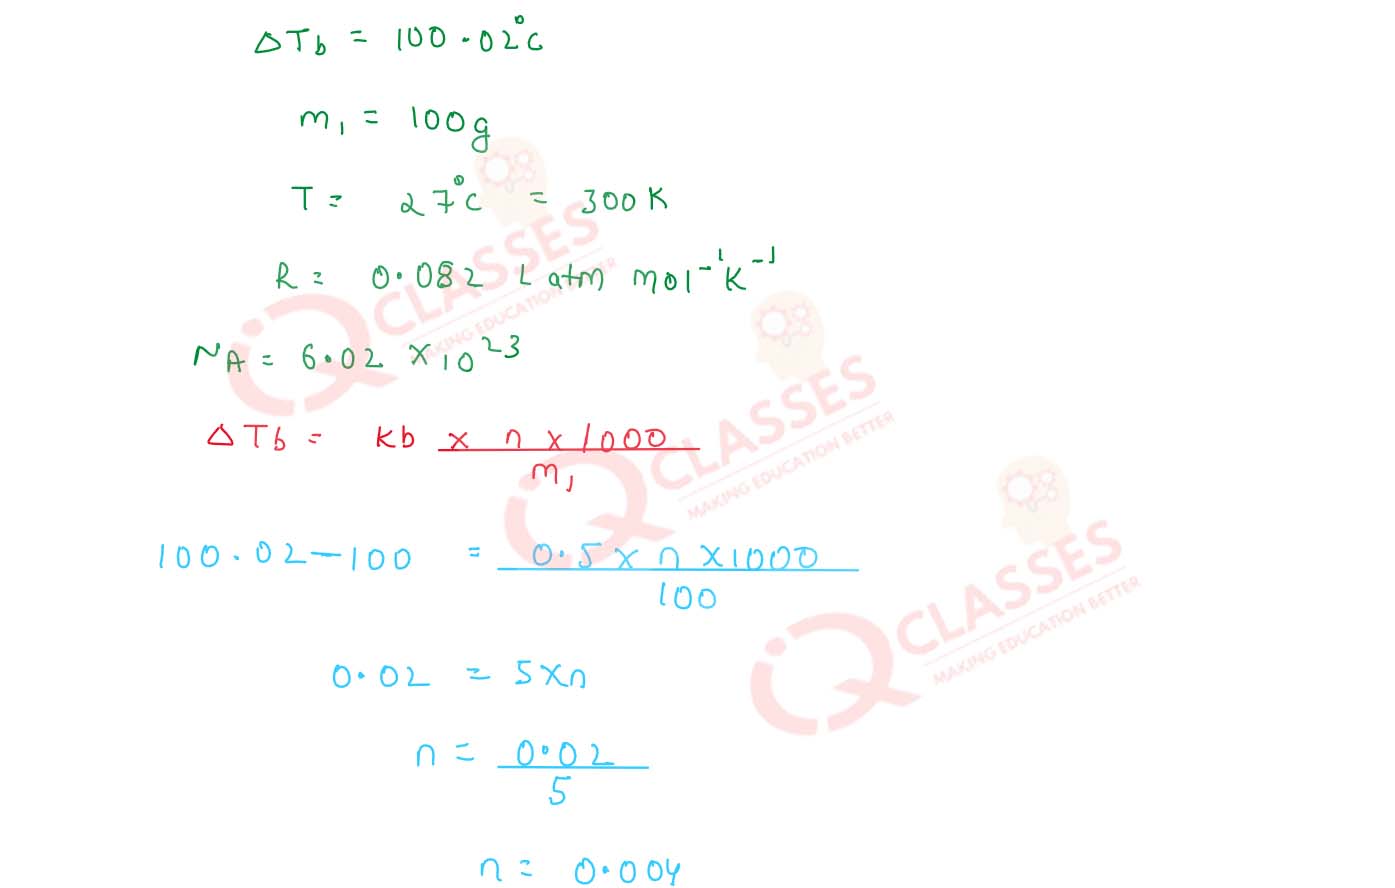 ΔTb = 100.02°C
m₁ = 100g
T = 27°C = 300K
R = 0.082 L atm mol⁻¹K⁻¹
NA = 6.02 × 10²³
ΔTb = Kb × n × 1000
m₁
100.02 – 100 = 0.5 × n × 1000
100
0.02 = 5 × n
n = 0.02
5
n = 0.004
iQ CLASSES
MAKING EDUCATION BETTER
iQ CLASSES
MAKING EDUCATION BETTER
iQ CLASSES
MAKING EDUCATION BETTER